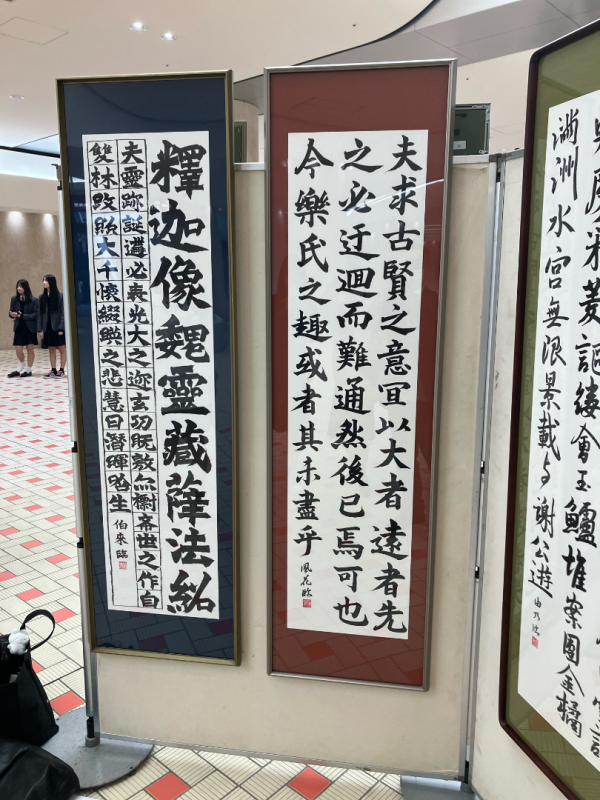 度采菱謳縷會玉鱸堆案團金橘
滿洲水宮無限景載与謝公遊
夫求古賢之意宜以大者遠者先
之必迂迴而難通然後已焉可也
今樂氏之趣或者其未盡乎 風花臨
釋迦像魏靈藏薛法紹
夫靈跡誕遘必表光大之迹玄功既敷亦標希世之作自
雙林改照大千懷綴暎之悲慧日潛暉唅生 伯來臨